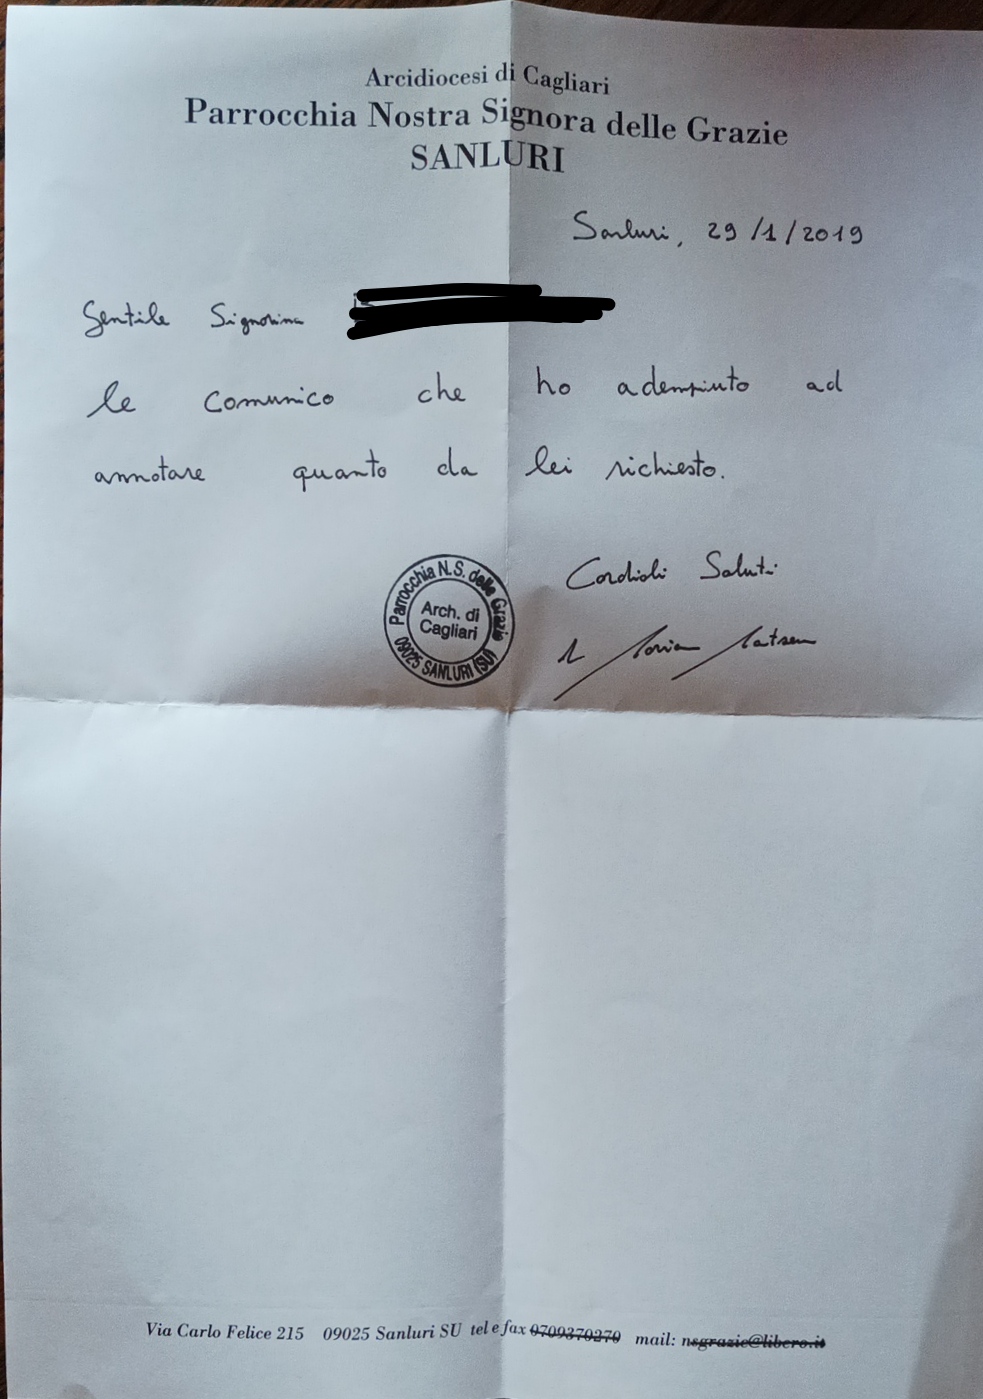 Arcidiocesi di Cagliari
Parrocchia Nostra Signora delle Grazie
SANLURI
Sanluri, 29/1/2019
Gentile Signorina
le comunico che ho adempiuto ad
annotare quanto da lei richiesto.
Cordiali Saluti
Parrocchia N.S. delle Grazie
Arch. di
Cagliari
09025 SANLURI (SU)
Via Carlo Felice 215 09025 Sanluri SU tel e fax 0709370270 mail: nsgrazie@libero.it